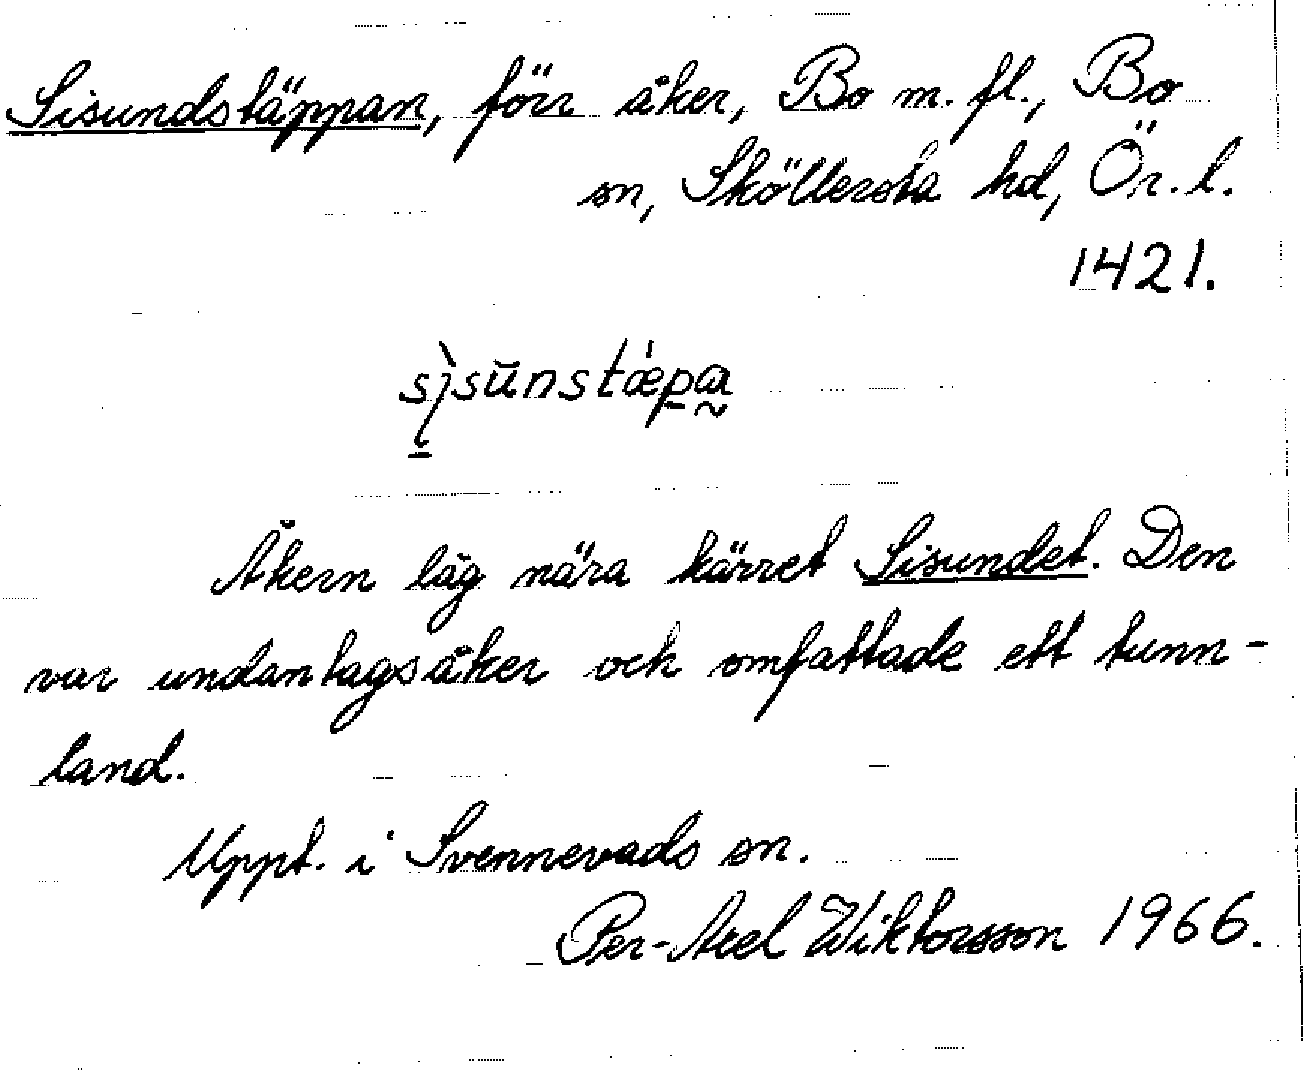 Sisundstäppan, förr åker, Bo m. fl., Bo
sn, Sköllersta hd, Ör. l.
1421.
Åkern låg nära kärret Sisundet. Den
var undantagsåker och omfattade ett tunn-
land.
Uppt. i Svennevads sn.
Per-Axel Wiktorsson 1966.